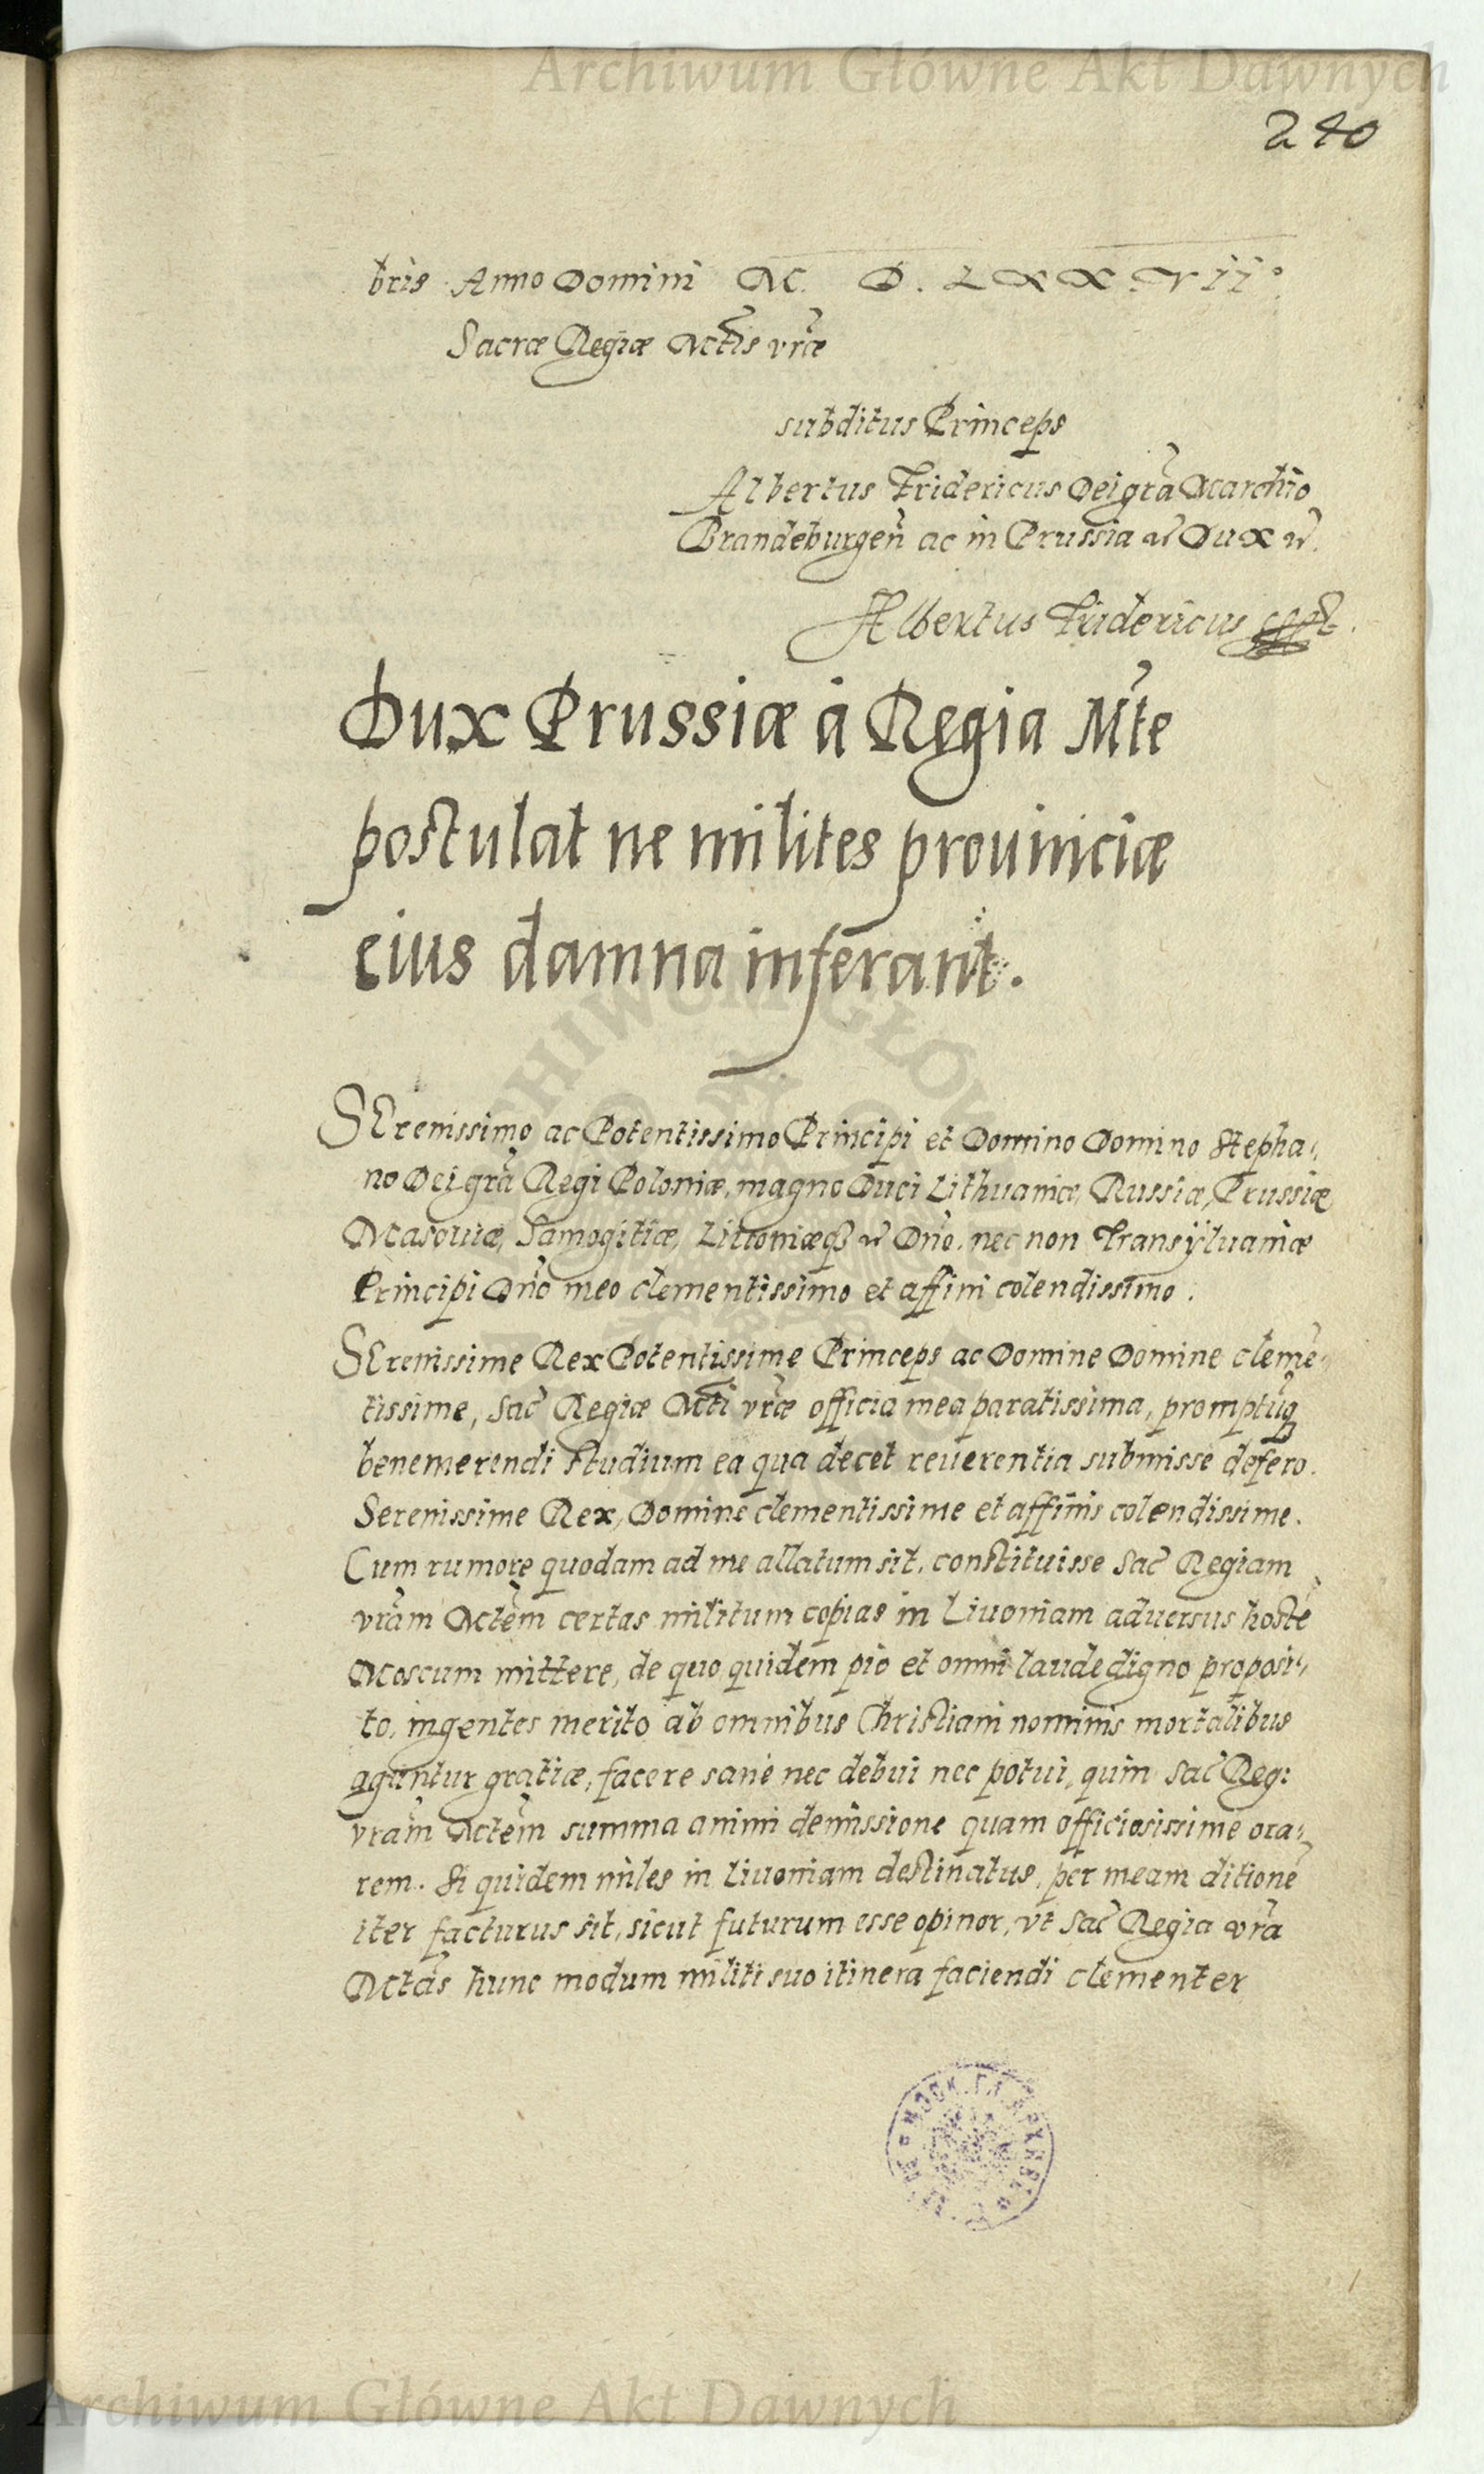 Archiwum Główne Akt Dawnych
240
bris Anno Domini M. D. LXXVII°
Sacræ Regiæ Mtis vræ
subditus Princeps
Albertus Fridericus Dei gra Marchio
Brandeburgeñ ac in Prussia Dux
Albertus Fridericus
Dux Prussiæ à Regia Mte
postulat ne milites prouinciæ
eius damna inferant.
SErenissimo ac Potentissimo Principi et Domino Domino Stepha-
no Dei grã Regi Poloniæ, magno Duci Lithuaniæ, Russiæ, Prussiæ
Masouiæ, Samogitiæ, Liuoniæq3 Dño. nec non Transyluaniæ
Principi Dño meo clementissimo et affini colendissimo.
SErenissime Rex Potentissime Princeps ac Domine Domine clemẽ-
tissime, Sac̃ Regiæ Mti vræ officia mea paratissima, promptũq3
benemerendi studium ea qua decet reuerentia submisse defero.
Serenissime Rex, Domine clementissime et affinis colendissime.
Cum rumore quodam ad me allatum sit, constituisse Sac̃ Regiam
vrãm Mtẽm certas militum copias in Liuoniam aduersus hostẽ
Moscum mittere, de quo quidem pio et omni laude digno proposi-
to, ingentes merito ab omnibus Christiani nominis mortalibus
aguntur gratiæ, facere sanè nec debui nec potui, quin Sac̃ Reg:
vrãm Mtẽm summa animi demissione quam officiosissime ora-
rem. Si quidem miles in Liuoniam destinatus, per meam ditionẽ
iter facturus sit, sicut futurum esse opinor, vt Sac̃ Regia vrã
Mtãs hunc modum militi suo itinera faciendi clementer
Archiwum Główne Akt Dawnych